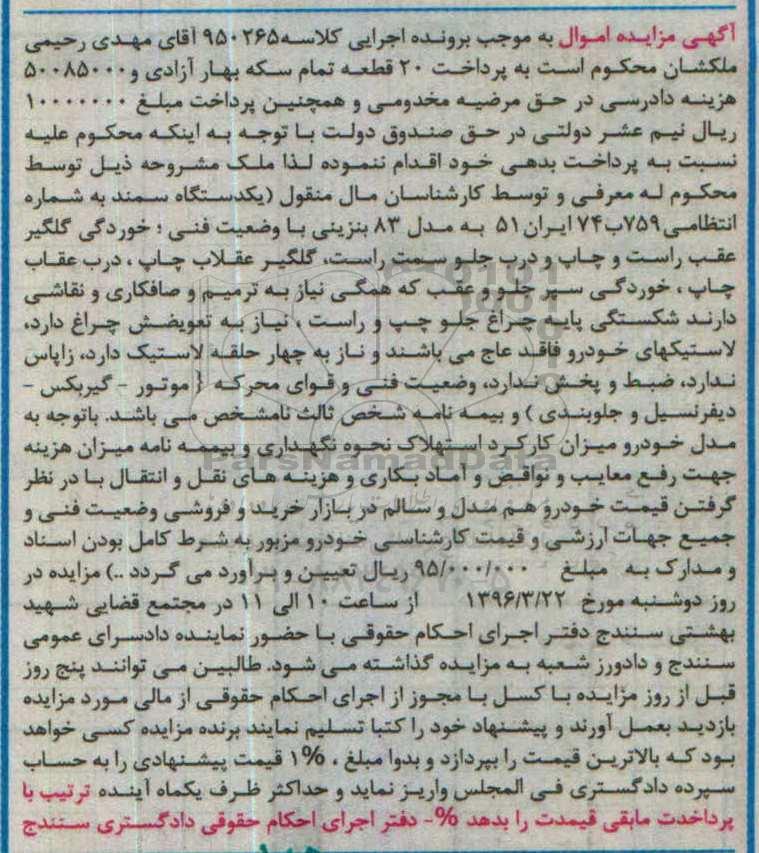 آگهی مزایده اموال به موجب برونده اجرایی کلاسه ۹۵۰۲۶۵ آقای مهدی رحیمی
ملکشان محکوم است به پرداخت ۲۰ قطعه تمام سکه بهار آزادی و ۵۰۰۸۵۰۰۰
هزینه دادرسی در حق مرضیه مخدومی و همچنین پرداخت مبلغ ۱۰۰۰۰۰۰۰
ریال نیم عشر دولتی در حق صندوق دولت با توجه به اینکه محکوم علیه
نسبت به پرداخت بدهی خود اقدام ننموده لذا ملک مشروحه ذیل توسط
محکوم له معرفی و توسط کارشناسان مال منقول (یکدستگاه سمند به شماره
انتظامی ۷۵۹ب۷۴ ایران ۵۱ به مدل ۸۳ بنزینی با وضعیت فنی ؛ خوردگی گلگیر
عقب راست و چاپ و درب جلو سمت راست، گلگیر عقلاب چاپ ، درب عقاب
چاپ ، خوردگی سپر جلو و عقب که همگی نیاز به ترمیم و صافکاری و نقاشی
دارند شکستگی پایه چراغ جلو چپ و راست ، نیاز به تعویضش چراغ دارد،
لاستیکهای خودرو فاقد عاج می باشند و ناز به چهار حلقه لاستیک دارد، زاپاس
ندارد، ضبط و پخش ندارد، وضعیت فنی و قوای محرکه { موتور - گیربکس -
دیفرنسیل و جلوبندی ) و بیمه نامه شخص ثالث نامشخص می باشد. باتوجه به
مدل خودرو میزان کارکرد استهلاک نحوه نگهداری و بیممه نامه میزان هزینه
جهت رفع معایب و نواقص و آماد بکاری و هزینه های نقل و انتقال با در نظر
گرفتن قیمت خودرو هم مدل و سالم در بازار خرید و فروشی وضعیت فنی و
جمیع جهات ارزشی و قیمت کارشناسی خودرو مزبور به شرط کامل بودن اسناد
و مدارک به مبلغ ۹۵/۰۰۰/۰۰۰ ریال تعیین و برآورد می گردد ..) مزایده در
روز دوشنبه مورخ ۱۳۹۶/۳/۲۲ از ساعت ۱۰ الی ۱۱ در مجتمع قضایی شهید
بهشتی سنندج دفتر اجرای احکام حقوقی با حضور نماینده دادسرای عمومی
سنندج و دادورز شعبه به مزایده گذاشته می شود. طالبین می توانند پنج روز
قبل از روز مزایده با کسل با مجوز از اجرای احکام حقوقی از مالی مورد مزایده
بازدید بعمل آورند و پیشنهاد خود را کتبا تسلیم نمایند برنده مزایده کسی خواهد
بود که بالاترین قیمت را بپردازد و بدوا مبلغ ، ۱% قیمت پیشنهادی را به حساب
سپرده دادگستری فی المجلس واریز نماید و حداکثر ظرف یکماه آینده ترتیب با
پرداخدت مابقی قیمدت را بدهد %- دفتر اجرای احکام حقوقی دادگستری سنندج
ParsNamadData